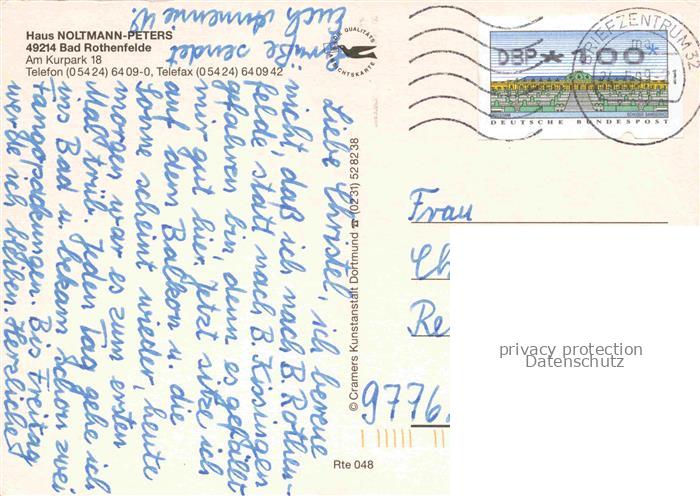 Haus NOLTMANN-PETERS
49214 Bad Rothenfelde
Am Kurpark 18
Telefon (0 54 24) 64 09-0, Telefax (0 54 24) 64 09 42
Liebe Christel, ich bereue
nicht, daß ich nach B. Rothen-
felde statt nach B. Kissingen
gefahren bin, denn es gefällt
mir gut hier. Jetzt sitze ich
auf dem Balkon u. die
Sonne scheint wieder, heute
morgen war es zum ersten
Mal trüb. Jeden Tag gehe ich
ins Bad u. bekam schon zwei
Fangopackungen. Bis Freitag
werde ich bleiben. Herzliche
Grüße sendet
Euch Annemie W.
QUALITÄTS
© Cramers Kunstanstalt Dortmund ☎ (02 31) 52 82 38
Rte 048
BRIEFZENTRUM 32
DBP * 100*
DEUTSCHE BUNDESPOST
Frau
Ch
Re
9776
privacy protection
Datenschutz